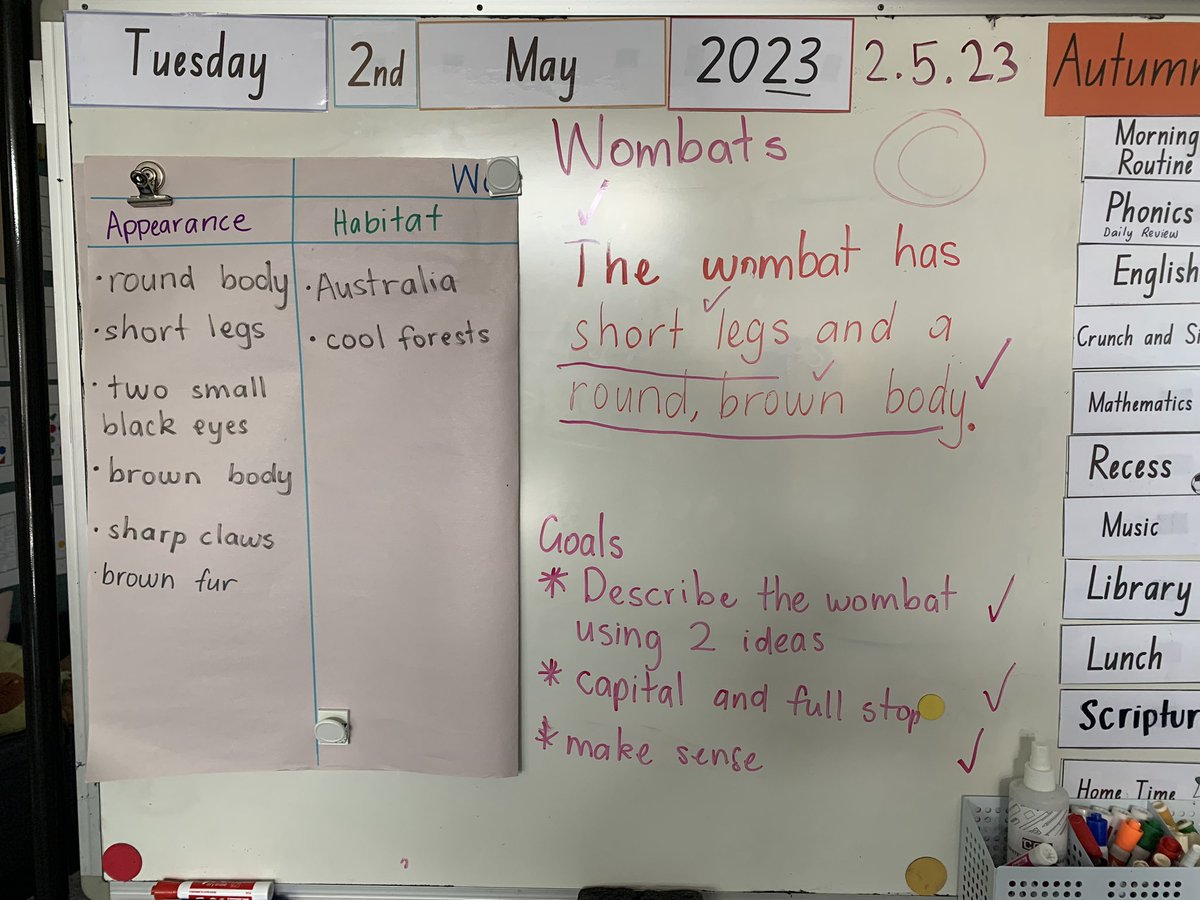 Tuesday 2nd May 2023 2.5.23 Autumn
Appearance Habitat
• round body
• short legs
• two small
black eyes
• brown body
• sharp claws
• brown fur
• Australia
• cool forests
Wombats
The wombat has
short legs and a
round, brown body.
Goals
* Describe the wombat
using 2 ideas
* capital and full stop
* make sense
Morning
Routine
Phonics
Daily Review
English
Crunch and
Mathematics
Recess
Music
Library
Lunch
Scriptur
Home Time